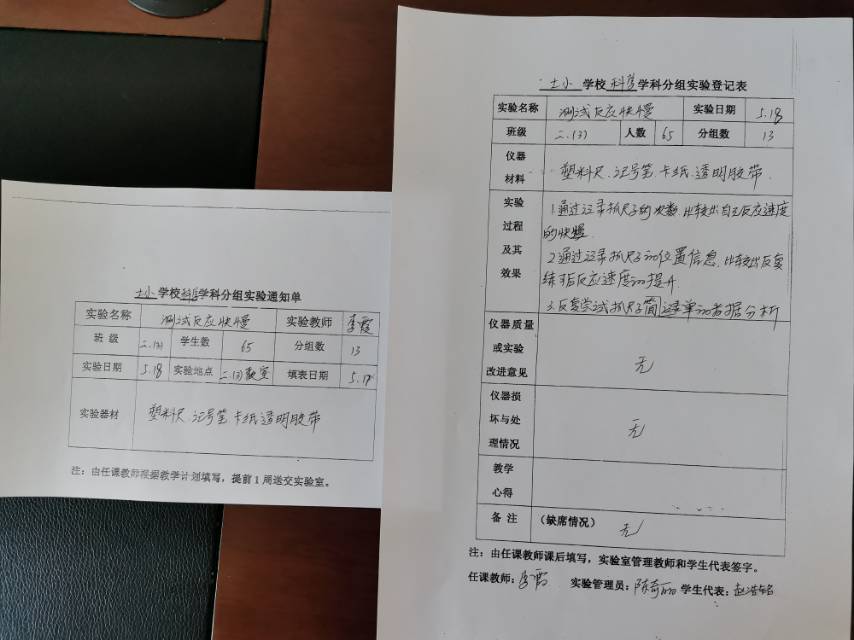 土小学校科学学科分组实验通知单
实验名称 测试反应快慢 实验教师 李霞
班 级 二.(3) 学生数 65 分组数 13
实验日期 5.18 实验地点 二.(3)教室 填表日期 5.17
实验器材 塑料尺.记号笔.卡纸.透明胶带
注：由任课教师根据教学计划填写，提前1周送交实验室。
土小学校科学学科分组实验登记表
实验名称 测试反应快慢 实验日期 5.18
班级 二.(3) 人数 65 分组数 13
仪器材料 塑料尺.记号笔.卡纸.透明胶带.
实验过程及其效果 1.通过记录抓尺子的次数.比较出自己反应速度
的快慢.
2.通过记录抓尺子的位置信息.比较出反复
练习后反应速度的提升.
3.反复尝试抓尺子简单的数据分析
仪器质量或实验改进意见 无
仪器损坏与处理情况 无
教学心得
备 注 （缺席情况） 无
注：由任课教师课后填写，实验室管理教师和学生代表签字。
任课教师：李霞 实验管理员：陈奇 学生代表：赵